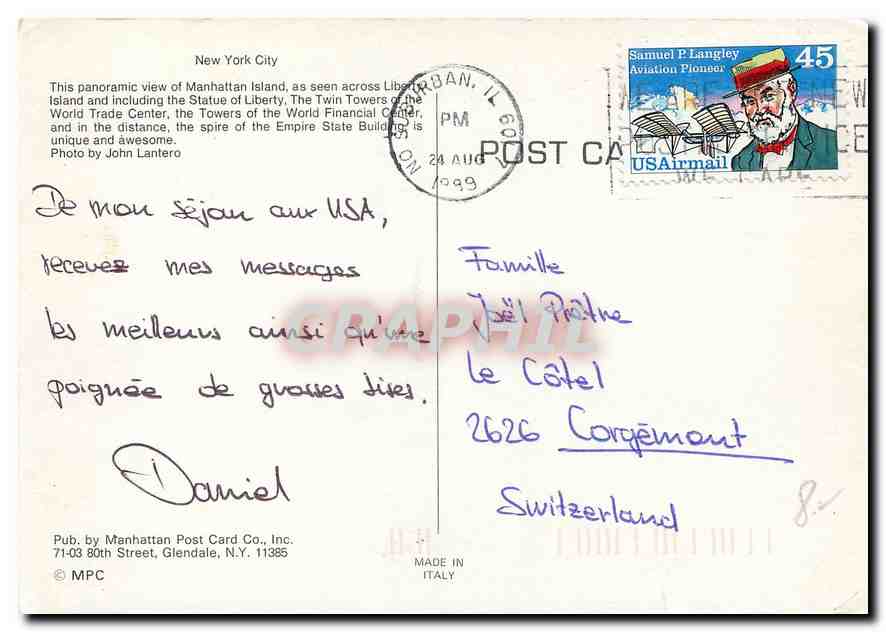 New York City
This panoramic view of Manhattan Island, as seen across Liberty
Island and including the Statue of Liberty, The Twin Towers of the
World Trade Center, the Towers of the World Financial Center,
and in the distance, the spire of the Empire State Building is
unique and awesome.
Photo by John Lantero
De mon séjour aux USA,
recevez mes messages
les meilleurs ainsi qu'une
poignée de grosses bises.
Daniel
Pub. by Manhattan Post Card Co., Inc.
71-03 80th Street, Glendale, N.Y. 11385
© MPC
MADE IN
ITALY
POST CA
NO SUBURBAN, IL 601
PM
24 AUG
1999
Samuel P. Langley
Aviation Pioneer
45
USAirmail
WE ARE NEW
CE
WE CARE
Famille
Joël Prêtre
Le Côtel
2626 Corgémont
Switzerland
8.-
GRAPHIL